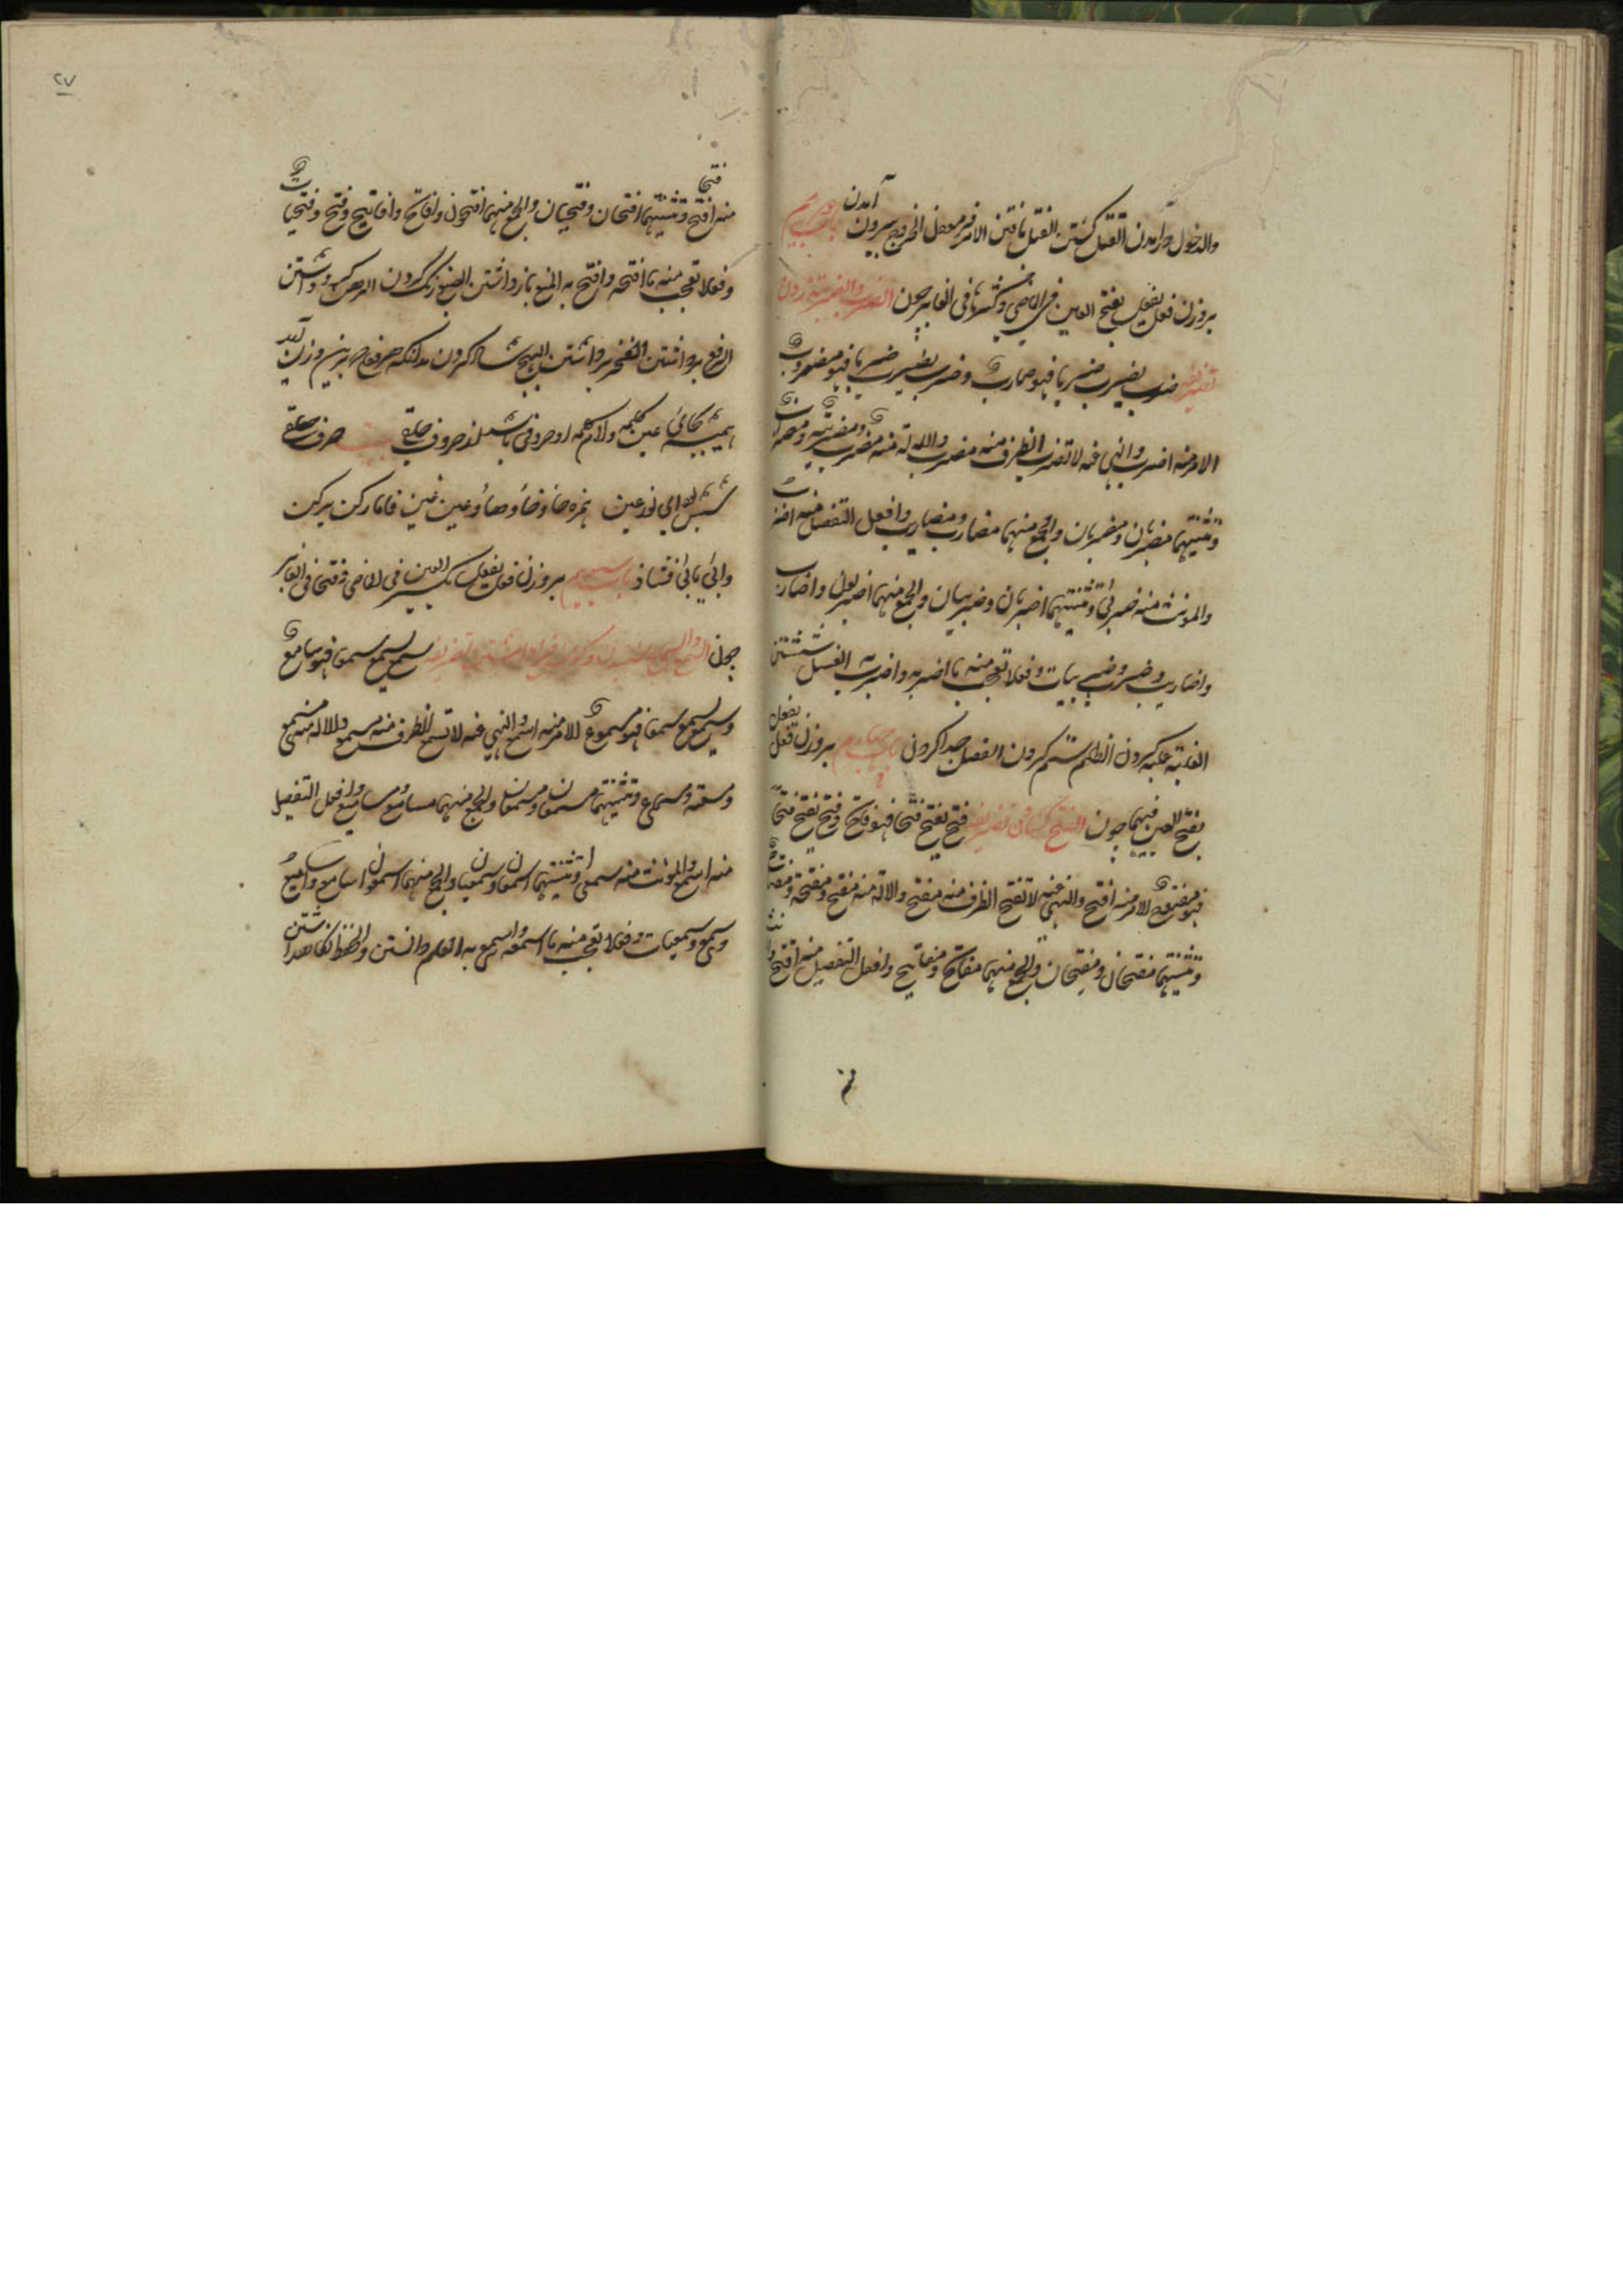 والدخول درآمدن القتل كشتن الفتل تافتن الامر فرمودن الخروج بيرون آمدن باب دويم
بروزن فعل يفعل بفتح العين فى الماضى وكسرها فى الغابر چون الضرب والضربة زدن
تصريفه ضرب يضرب ضربا فهو ضارب وضرب يضرب ضربا فهو مضروب
الامر منه اضرب والنهى عنه لا تضرب الظرف منه مضرب والالة منه مضرب ومضربة ومضراب
وتثنيتهما مضربان ومضربان والجمع منهما مضارب ومضاريب وافعل التفضيل منه اضرب
والمونث منه ضربى وتثنيتهما اضربان وضربيان والجمع منهما اضربون واضارب
واضاريب وضرب وضربيات وفعلا تعجب منه ما اضربه واضرب به الغسل شستن
الغلبة غلبه كردن الظلم ستم كردن الفصل جدا كردن باب چهارم بروزن فعل يفعل
بفتح العين فيهما چون الفتح كشادن تصريفه فتح يفتح فتحا فهو فاتح وفتح يفتح فتحا
فهو مفتوح الامر منه افتح والنهى عنه لا تفتح الظرف منه مفتح والالة منه مفتح ومفتحة ومفتاح
وتثنيتهما مفتحان ومفتحان والجمع منهما مفاتح ومفاتيح وافعل التفضيل منه افتح
منه
٢٧
منه افتح وتثنيتهما افتحان وفتحيان والجمع منهما افتحون وافاتح وافاتيح وفتح وفتحيات
وفعلا تعجب منه ما افتحه وافتح به المنع بازداشتن الصبغ رنگ كردن
الرفع برداشتن شاد كردن بدانكه هر فعل بدين وزن آيد
هميشه بجاى عين كلمه ولام كلمه او حروفى باشد از حروف حلق بيت حرف حلق
شش بود اى نور عين همزه هاؤ حاؤ خاؤ عين غين فاما ركن يركن
وابى يابى فشاذ باب سيوم بروزن فعل يفعل بكسر العين فى الماضى وفتحها فى الغابر
چون السمع والسماع شنيدن وگوش فرا داشتن تصريفه سمع يسمع سمعا فهو سامع
وسمع يسمع سمعا فهو مسموع الامر منه اسمع والنهى عنه لا تسمع الظرف منه مسمع والالة منه مسمع
ومسمعة ومسماع وتثنيتهما مسمعان ومسمعان والجمع منهما مسامع ومساميع وافعل التفضيل
منه اسمع والمؤنث منه سمعى وتثنيتهما اسمعان وسمعيان والجمع منهما اسمعون واسامع واساميع
وسمع وسمعيات وفعلا تعجب منه ما اسمعه واسمع به العلم دانستن والحفظ نگاهداشتن